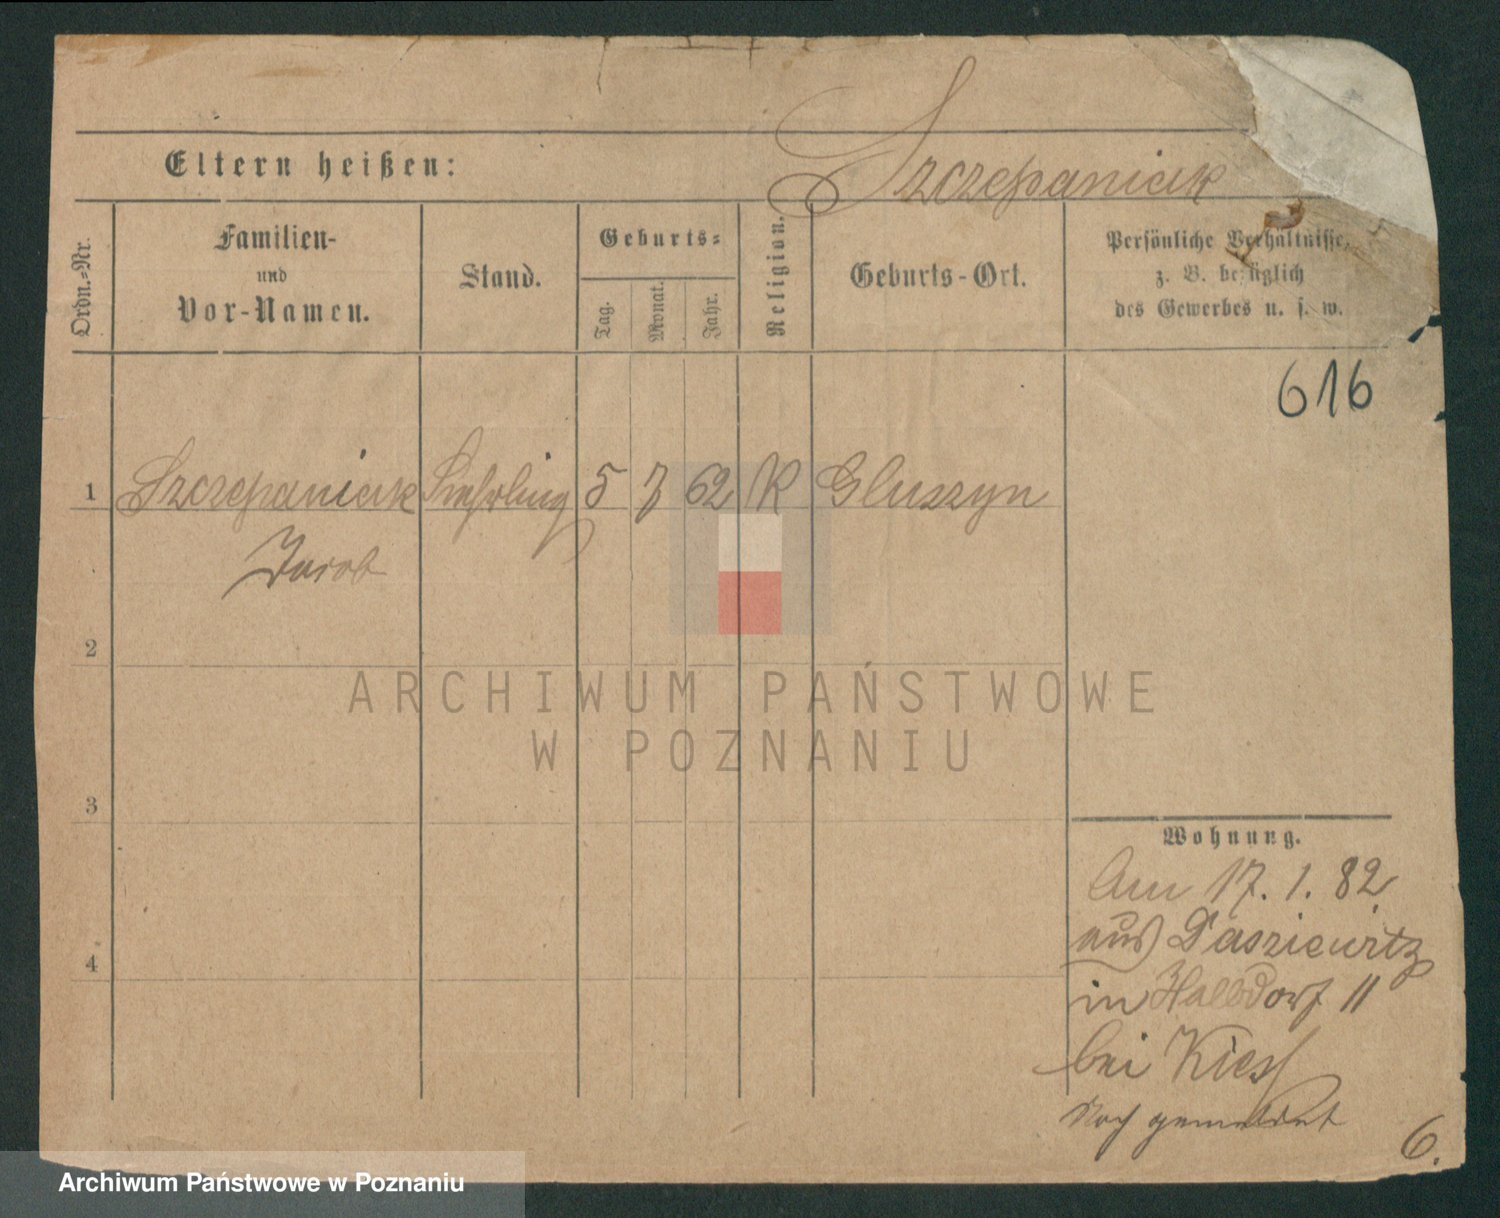 Szczepaniak
Eltern heißen:
Ordn.-Nr.
Familien-
und
Vor-Namen.
Stand.
Geburts-
Tag.
Monat.
Jahr.
Religion.
Geburts-Ort.
Persönliche Verhältnisse,
z. B. bezüglich
des Gewerbes u. s. w.
616
1 Szczepaniak Lehrling 5 7 62 K Gluszyn
Jacob
2
ARCHIWUM PAŃSTWOWE
W POZNANIU
3
Wohnung.
Am 17. 1. 82
aus
in Halbdorf 11
4
bei
gemeldet
6.
Archiwum Państwowe w Poznaniu